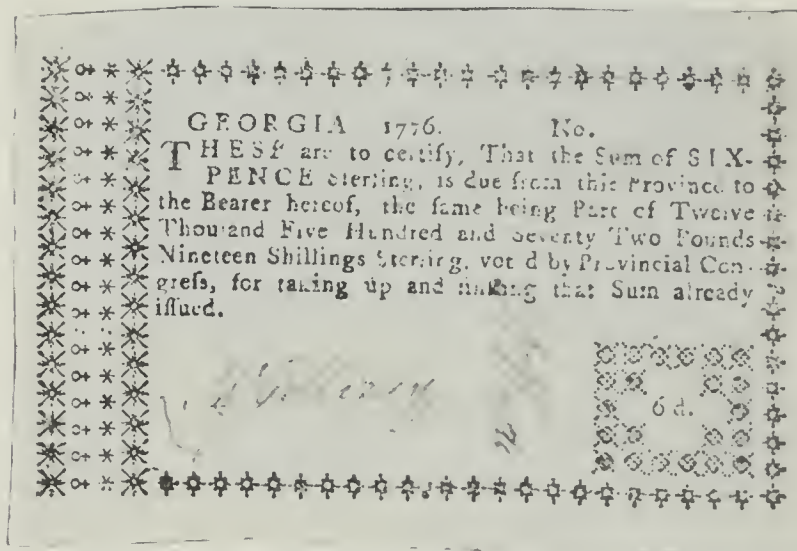 GEORGIA 1776. No.
THESE are to certify, That the Sum of SIX-
PENCE Sterling, is due from this Province to
the Bearer hereof, the same being Part of Twelve
Thousand Five Hundred and Seventy Two Pounds
Nineteen Shillings Sterling, vot'd by Provincial Con-
gress, for taking up and sinking that Sum already
issued.
6 d.